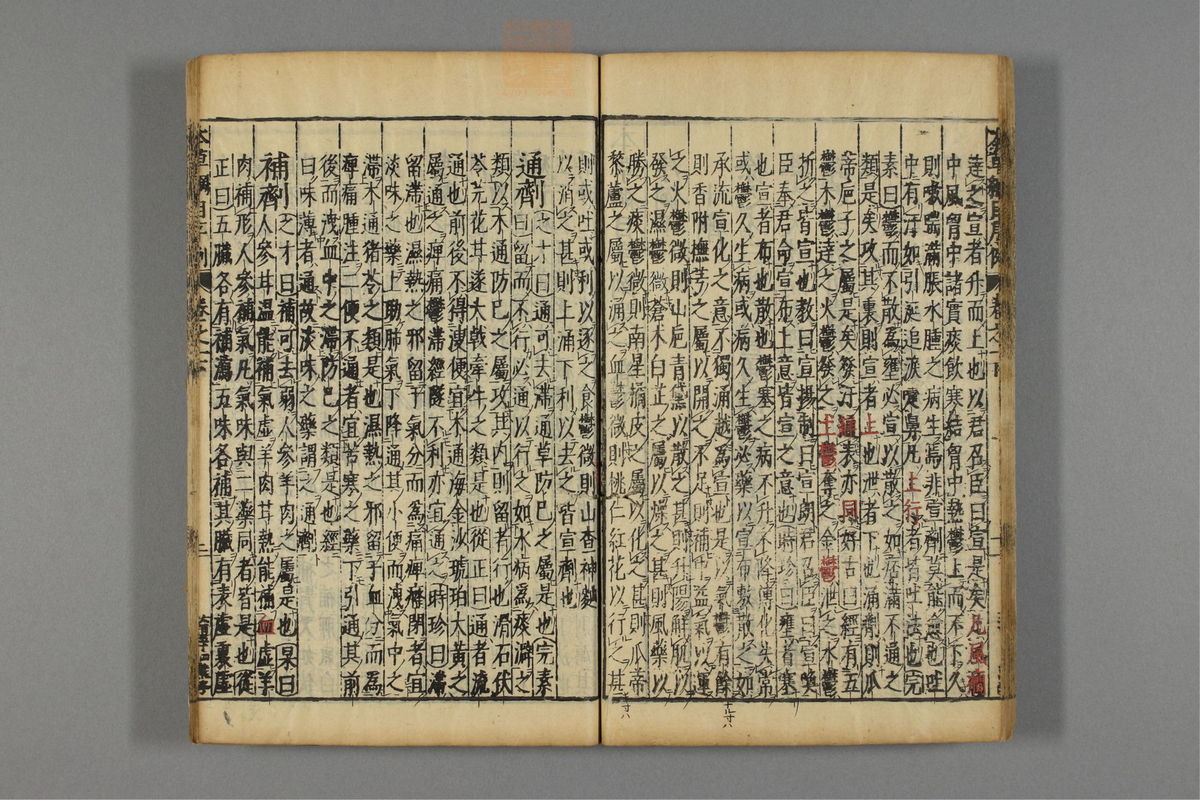 達之宣者升而上也以君召臣曰宣是矣凡風癇
中風胷中諸實痰飲寒結胷中熱鬱上而不下久
則嗽喘滿脹水腫之病生焉非宣劑莫能愈也吐
中有汗如引涎追淚嚏鼻凡上行者皆吐法也完
素曰鬱而不散為壅必宣以散之如痞滿不通之
類是矣攻其裏則宣者上也泄者下也涌劑則瓜
帝巵子之屬是矣發汗通表亦同好古曰經有五
鬱木鬱達之火鬱發之土鬱奪之金鬱泄之水鬱
折之皆宣也敎曰宣揚制曰宣朗君召臣曰宣喚
臣奉君命宣布上意皆宣之意也時珍曰壅者塞
也宣者布也散也鬱塞之病不升不降傳化失常
或鬱久生病或病久生鬱必藥以宣布敷散之如
承流宣化之意不獨涌越為宣也是以氣鬱有餘
則香附撫芎之屬以開之不足則補中益氣以運
之火鬱微則山巵青黛以散之甚則升陽解肌以
發之濕鬱微則蒼木白芷之屬以燥之甚則風藥以
勝之痰鬱微則南星橘皮之屬以化之甚則瓜帝
藜蘆之屬以涌之血鬱微則桃仁紅花以行之甚
則或吐或利以逐之食鬱微則山查神麯
以消之甚則上涌下利以去之皆宣劑也
通劑之才曰通可去滯通草防巳之屬是也完素
曰留而不行必通以行之如水病為痰澼之
類以木通防巳之屬攻其內則留者行也滑石伏
苓芫花甘遂大戟牽牛之類是也從正曰通者流
通也前後不得溲便宜木通海金沙琥珀大黃之
屬通之痺痛鬱滯經隧不利亦宜通之時珍曰滯
留滯也濕熱之邪留于氣分而為痛痺癃閉者宜
淡味之藥上助肺氣下降通其小便而洩氣中之
滯木通猪苓之類是也濕熱之邪留于血分而為
痺痛腫注二便不通者宜苦寒之藥下引通其前
後而洩血中之滯防巳之類是也經
曰味薄者通故淡味之藥謂之通劑
補劑之才曰補可去弱人參羊肉之屬是也杲曰
人參甘溫能補氣虛羊肉甘熱能補血虛羊
肉補形人參補氣凡氣味與二藥同者皆是也從
正曰五臟各有補瀉五味各補其臟有表虛裏虛